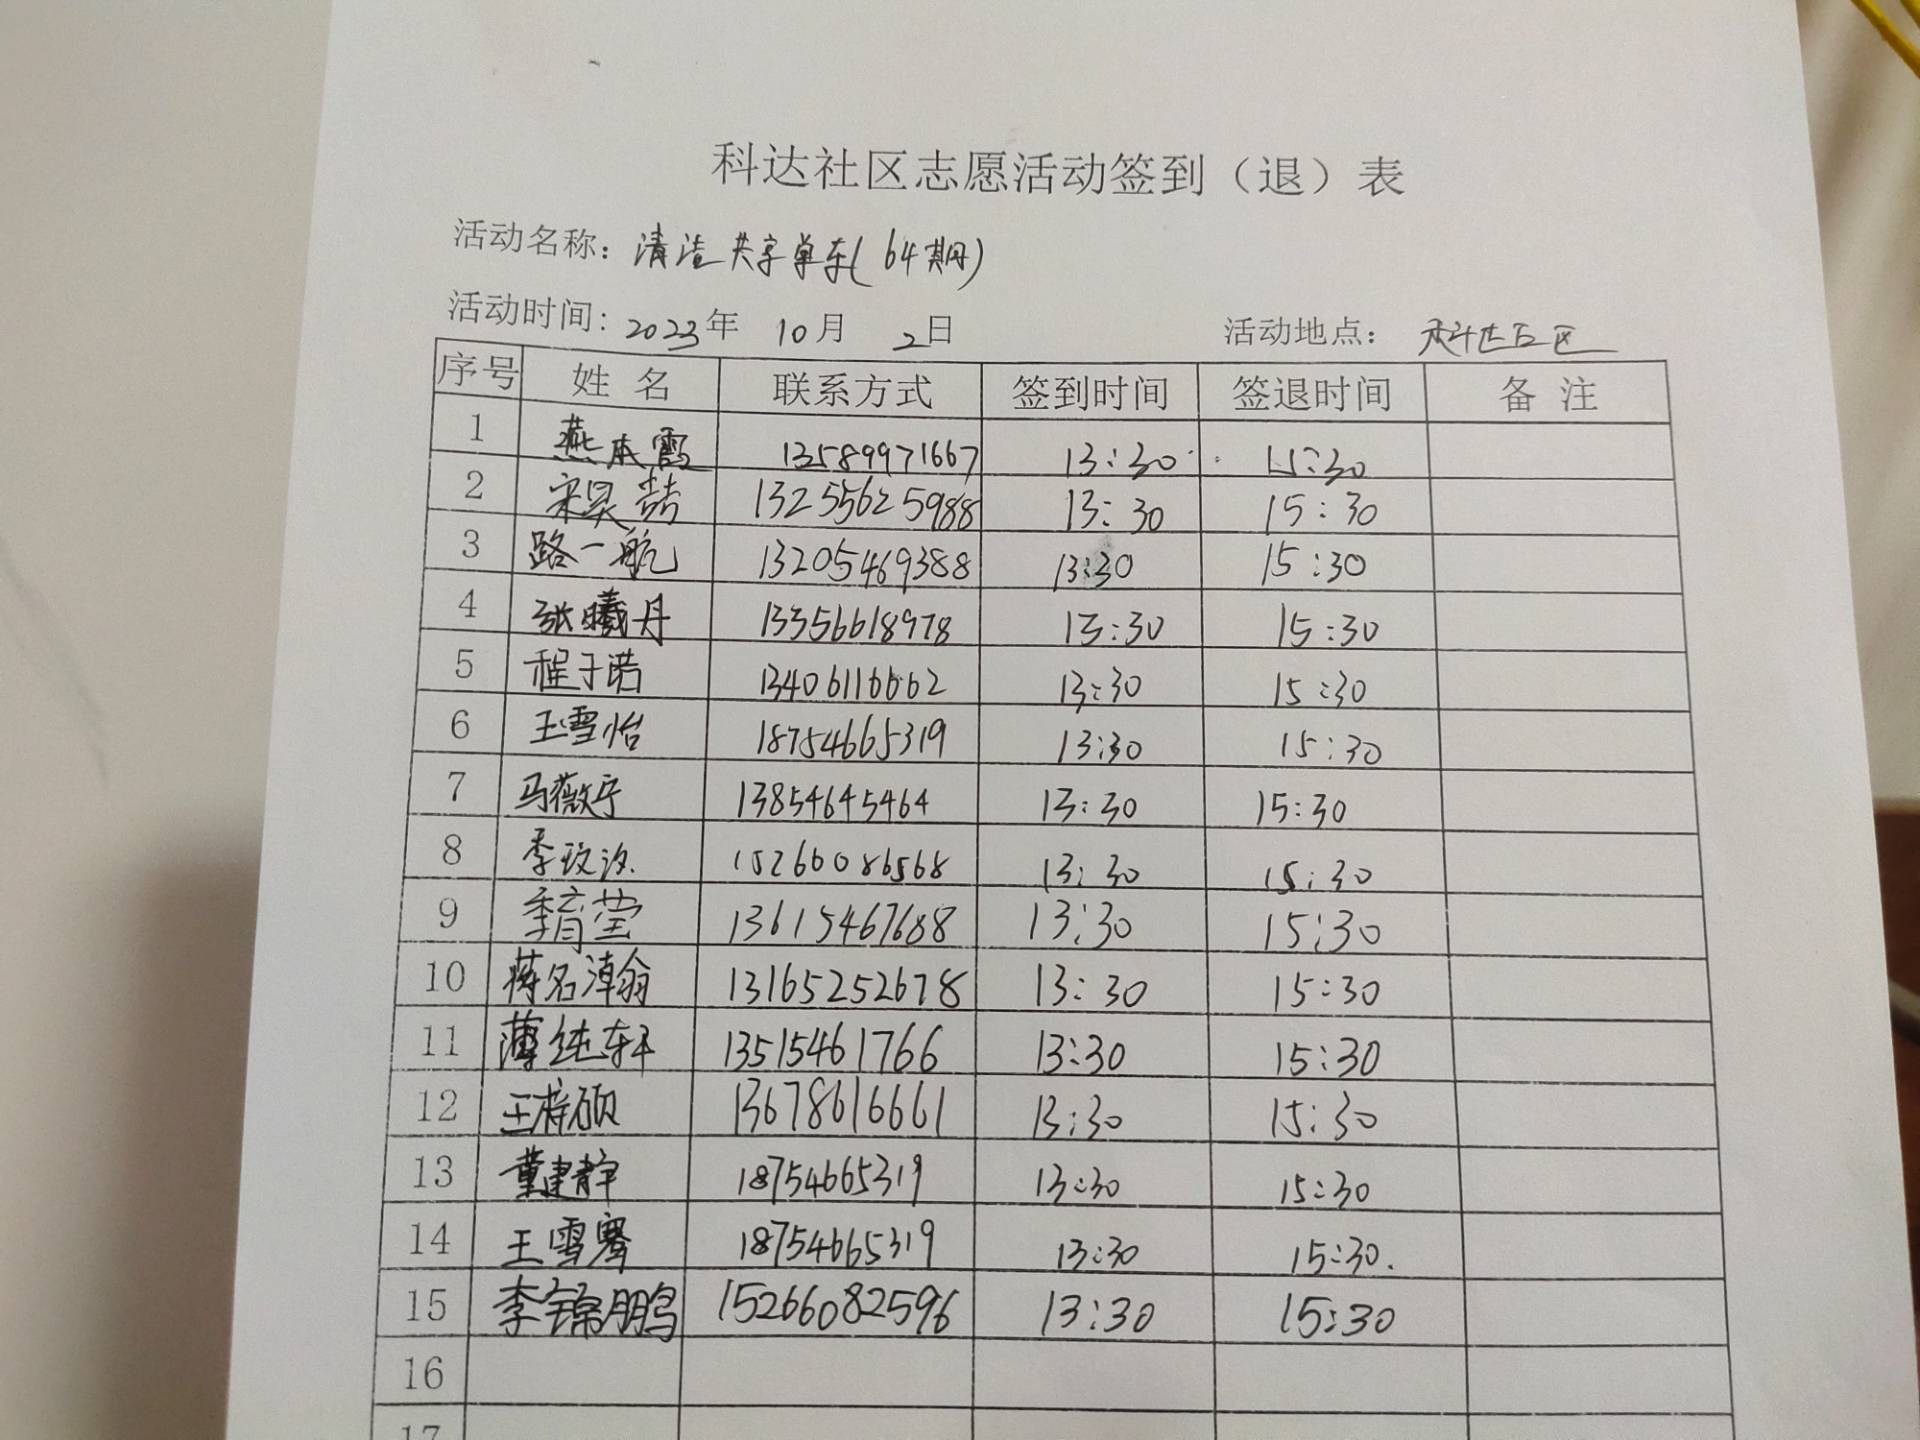 科达社区志愿活动签到（退）表
活动名称：清洁共享单车(64期)
活动时间：2023年 10月 2日 活动地点：科达社区
序号 姓名 联系方式 签到时间 签退时间 备注
1 燕本霞 13589971667 13:30 15:30
2 宋昊喆 13255625988 13:30 15:30
3 路一航 13205469388 13:30 15:30
4 张曦丹 13356618978 13:30 15:30
5 程子诺 13406116662 13:30 15:30
6 王雪怡 18754665319 13:30 15:30
7 马薇宁 13854645464 13:30 15:30
8 李玟汐 15266086568 13:30 15:30
9 李育莹 13615467688 13:30 15:30
10 蒋名漳翰 13165252678 13:30 15:30
11 薄纯轩 13515461766 13:30 15:30
12 王梓硕 13678616661 13:30 15:30
13 董建静 18754665319 13:30 15:30
14 王雪骞 18754665319 13:30 15:30.
15 李锦鹏 15266082596 13:30 15:30
16
17